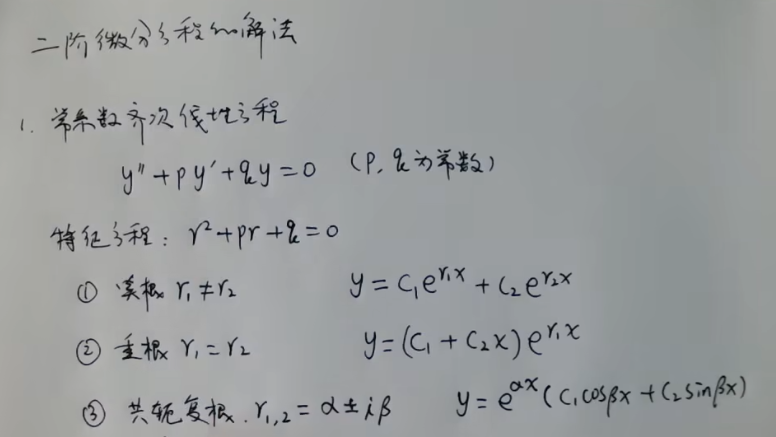 二阶微分方程的解法
1. 常系数齐次线性方程
y''+py'+qy=0 (p,q为常数)
特征方程: r²+pr+q=0
① 实根 r₁≠r₂ y=C₁e^{r₁x}+C₂e^{r₂x}
② 重根 r₁=r₂ y=(C₁+C₂x)e^{r₁x}
③ 共轭复根. r₁,₂=α±iβ y=e^{αx}(C₁cosβx+C₂sinβx)